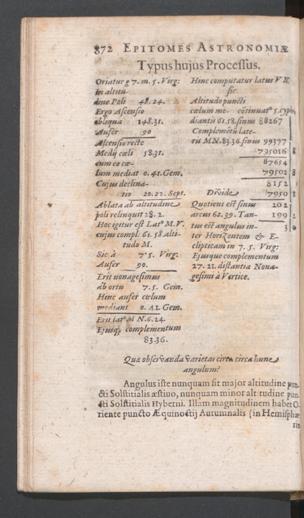 872 EPITOMES ASTRONOMIÆ
Typus hujus Processus.
Oriatur g 7. m. 5. Virg:
in altitu-
dine Poli 48.24.
Ergo Ascensio
obliqua 148.31.
Aufer 90
Ascensio recta
Medij cœli 58.31.
cum ea cœ-
lum mediat 0.41. Gem.
Cujus declina-
tio 20.22. Sept.
Ablata ab altitudine
poli relinquit 28.2.
Hoc igitur est Latᵘ M.V.
cujus compl. 61.58 alti-
tudo M.
Sic à 7°5. Virg:
Aufer 90.
Erit nonagesimus
ab ortu 7.5. Gem.
Hinc aufer cœlum
mediant 0.41. Gem.
Erit latᵘ M N.6.24.
Ejusq; complementum
83.36.
Hinc computatur latus V N
sic
Altitudo puncti
cœlum me-
diantis 61.58. sinum 88267
Complemētū late-
ris MN.83.36. sinum 99377
87654
79502
8152
Divide 7950
Quotiens est sinus 202
arcus 61.39. Tan- 199
tus est angulus in- 3
ter Horizontem & E-
clipticam in 7. 5. Virg:
Ejusque complementum
27.21. distantia Nona-
gesimi à Vertice.
Quæ observanda varietas circa hunc
angulum?
Angulus iste nunquam sit major altitudine pun-
cti Solstitialis æstivo, nunquam minor altitudine pun-
cti Solstitialis Hyberni. Illam magnitudinem habet O-
riente puncto Æquinoctij Autumnalis (in Hemisphæ-